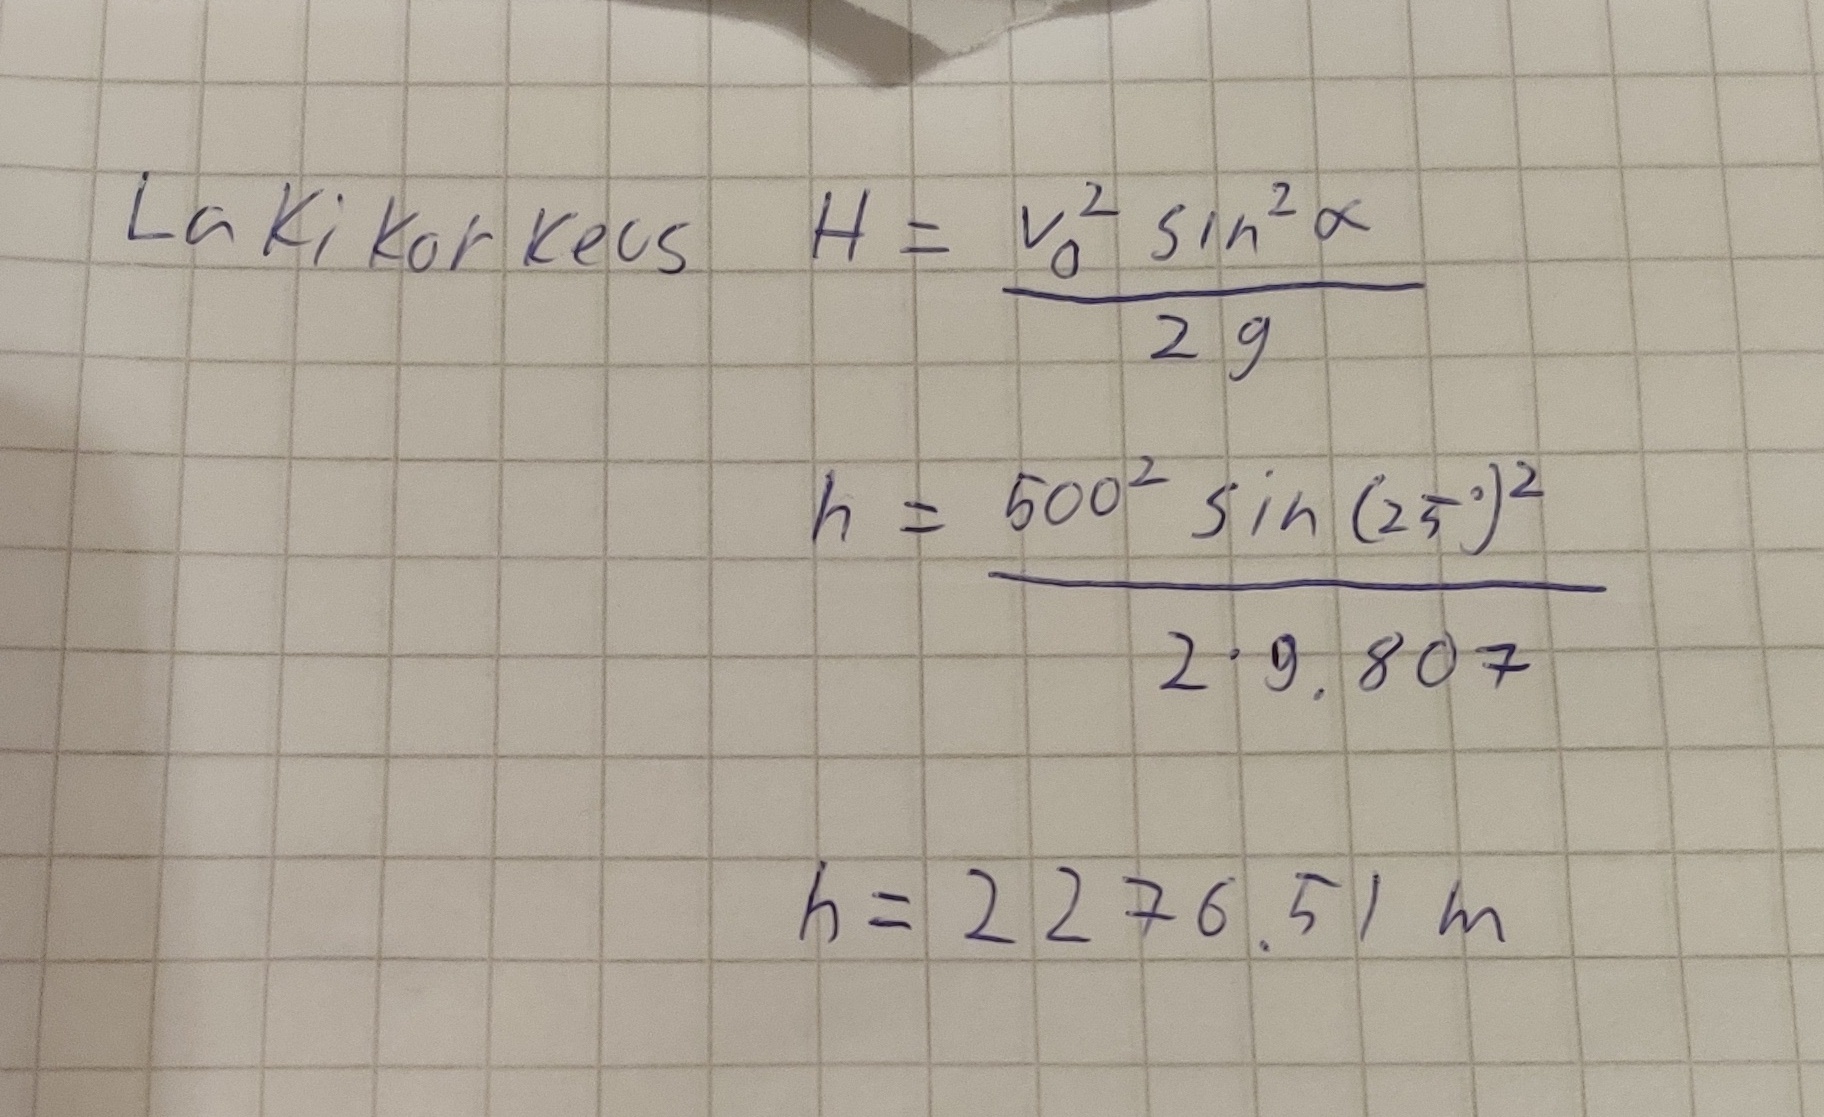 Lakikorkeus H = v₀² sin² α / 2g
h = 500² sin (25°)² / 2·9.807
h = 2276.51 m